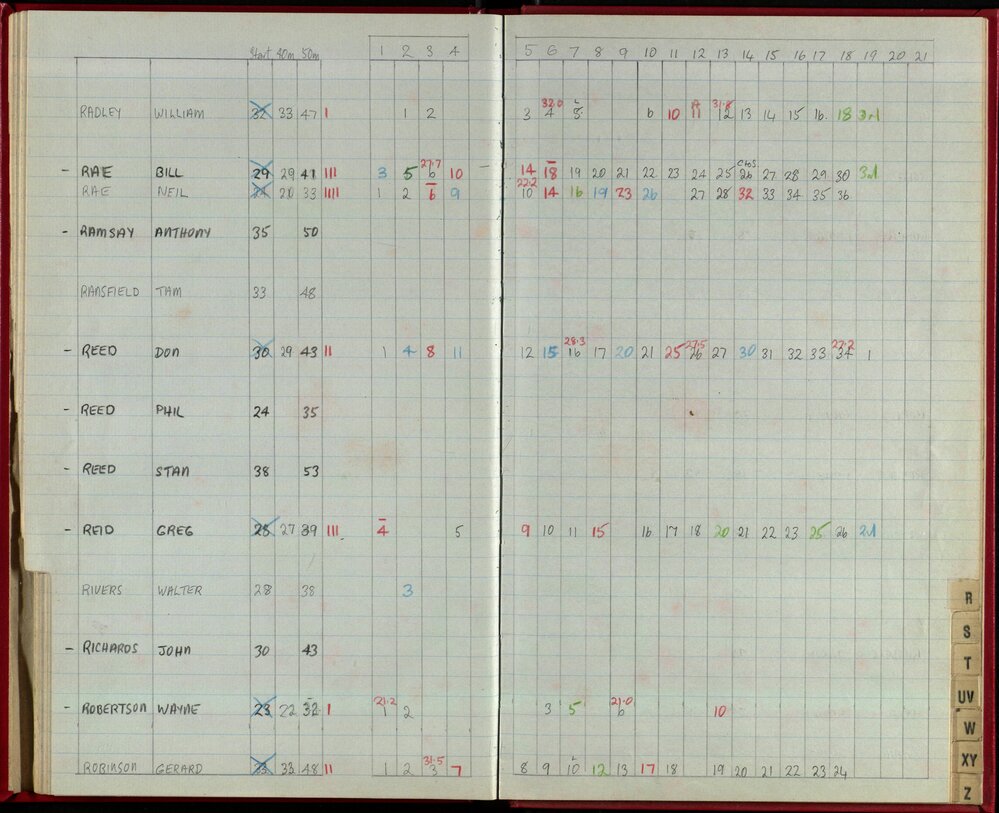 Start 40m 50m 1 2 3 4 5 6 7 8 9 10 11 12 13 14 15 16 17 18 19 20 21
32.0 L A 31.8
RADLEY WILLIAM 32 33 47 I 1 2 3 4 5 6 10 11 12 13 14 15 16. 18 3rd
27.7 CHOS
- RAE BILL 29 29 41 III 3 5 6 10 14 18 19 20 21 22 23 24 25 26 27 28 29 30 3rd
22.2
RAE NEIL 20 33 IIII 1 2 6 9 10 14 16 19 23 26 27 28 32 33 34 35 36
- RAMSAY ANTHONY 35 50
RANSFIELD TAM 33 48
28.3 27.5 27.2
- REED DON 30 29 43 II 1 4 8 11 12 15 16 17 20 21 25 26 27 30 31 32 33 34 1
- REED PHIL 24 35
- REED STAN 38 53
- REID GREG 25 27 39 III 4 5 9 10 11 15 16 17 18 20 21 22 23 25 26 2nd
RIVERS WALTER 28 38 3
- RICHARDS JOHN 30 43
21.2 21.0
- ROBERTSON WAYNE 23 22 32 I 1 2 3 5 6 10
31.5 L
ROBINSON GERARD 33 33 48 II 1 2 3 7 8 9 10 12 13 17 18 19 20 21 22 23 24
R
S
T
UV
W
XY
Z